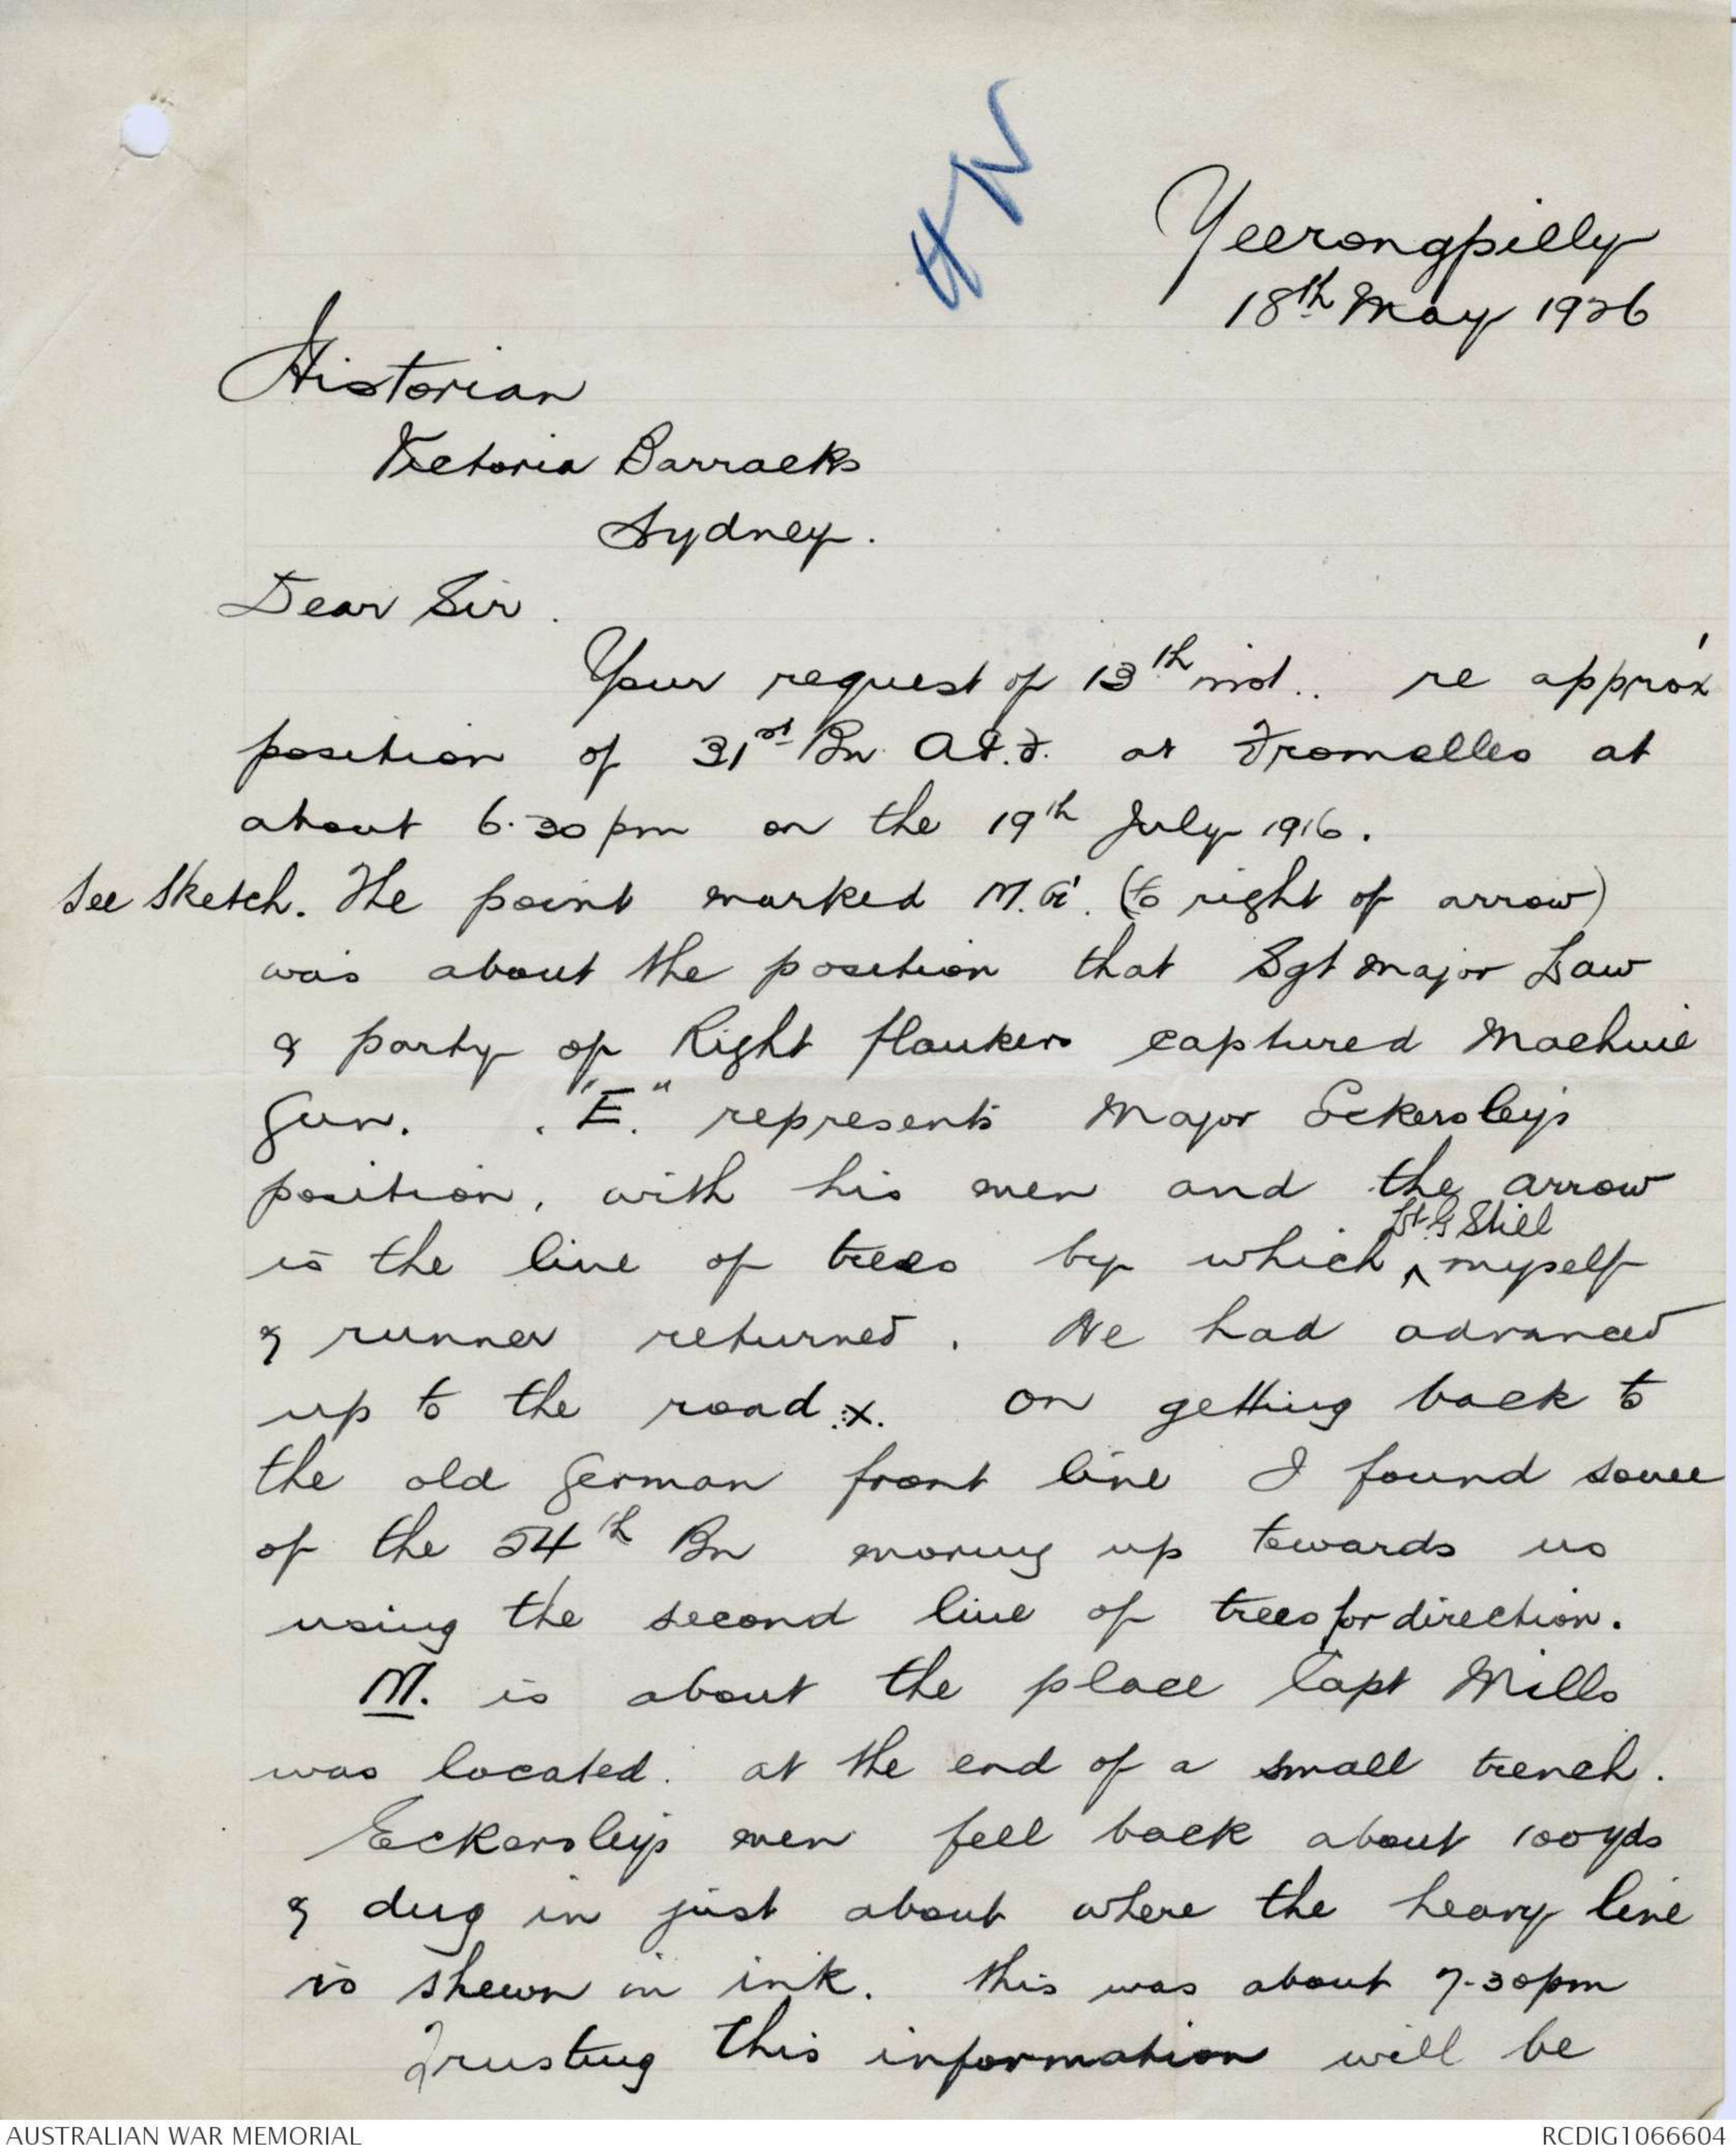 HN
Yeerongpilly
18th May 1926
Historian
Victoria Barracks
Sydney.
Dear Sir.
Your request of 13th inst.. re approx
position of 31st Bn A.I.F. at Fromelles at
about 6.30 pm on the 19th July 1916.
See Sketch. The point marked M.G. (to right of arrow)
was about the position that Sgt Major Law
& party of Right flankers captured Machine
Gun. . "E." represents Major Eckersley's
position, with his men and the arrow
Lt. G Still
is the line of trees by which ^ myself
& runner returned. We had advanced
up to the road .x. On getting back to
the old German front line I found some
of the 54th Bn moving up towards us
using the second line of trees for direction.
M. is about the place Capt Mills
was located. at the end of a small trench.
Eckersleys men fell back about 100 yds
& dug in just about where the heavy line
is shewn in ink. This was about 7.30pm
Trusting this information will be
AUSTRALIAN WAR MEMORIAL
RCDIG1066604